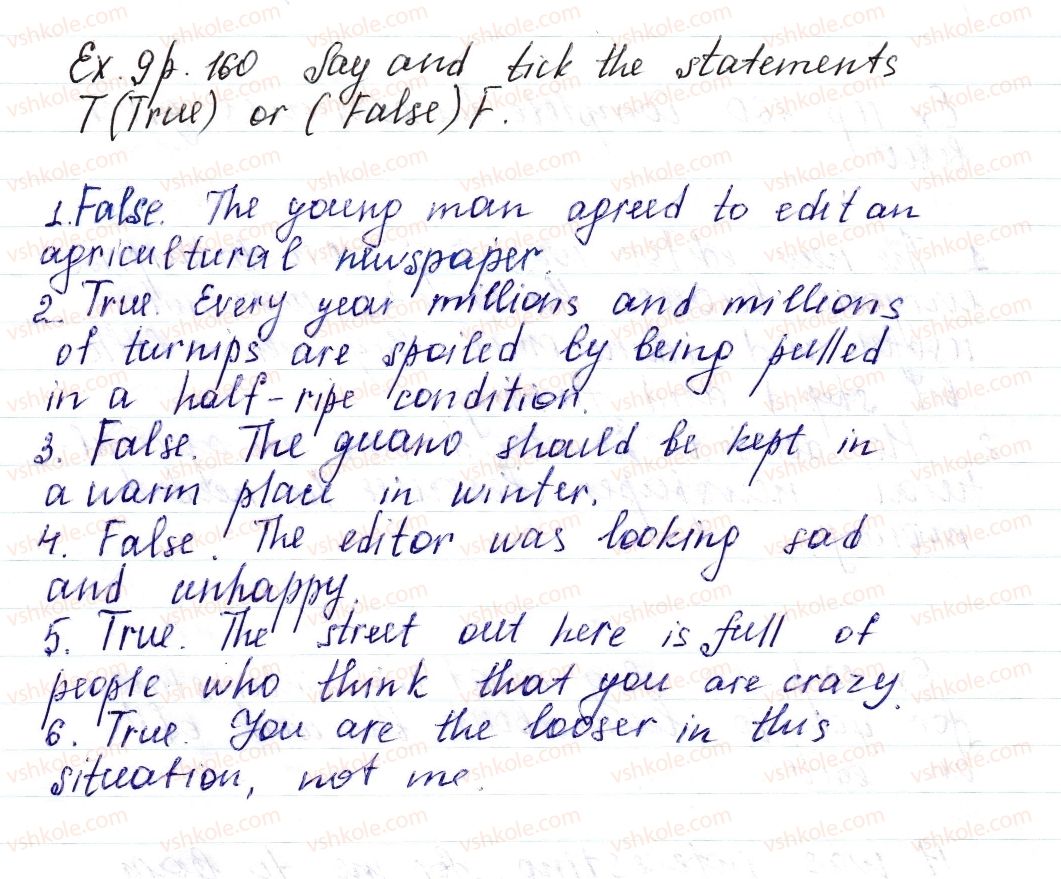 Ex. 9 p. 160 Say and tick the statements
T (True) or (False) F.
1. False. The young man agreed to edit an
agricultural newspaper.
2. True. Every year millions and millions
of turnips are spoiled by being pulled
in a half-ripe condition.
3. False. The guano should be kept in
a warm place in winter.
4. False. The editor was looking sad
and unhappy.
5. True. The street out here is full of
people who think that you are crazy.
6. True. You are the looser in this
situation, not me.